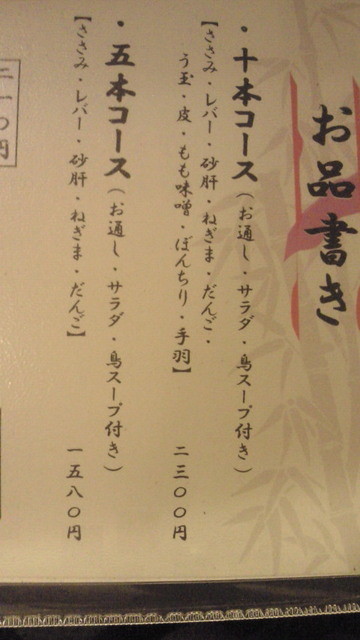 お品書き
・十本コース（お通し・サラダ・鳥スープ付き）
【ささみ・レバー・砂肝・ねぎま・だんご・
うう玉・皮・もも味噌・ぼんちり・手羽】
二三〇〇円
・五本コース（お通し・サラダ・鳥スープ付き）
【ささみ・レバー・砂肝・ねぎま・だんご】
一五八〇円